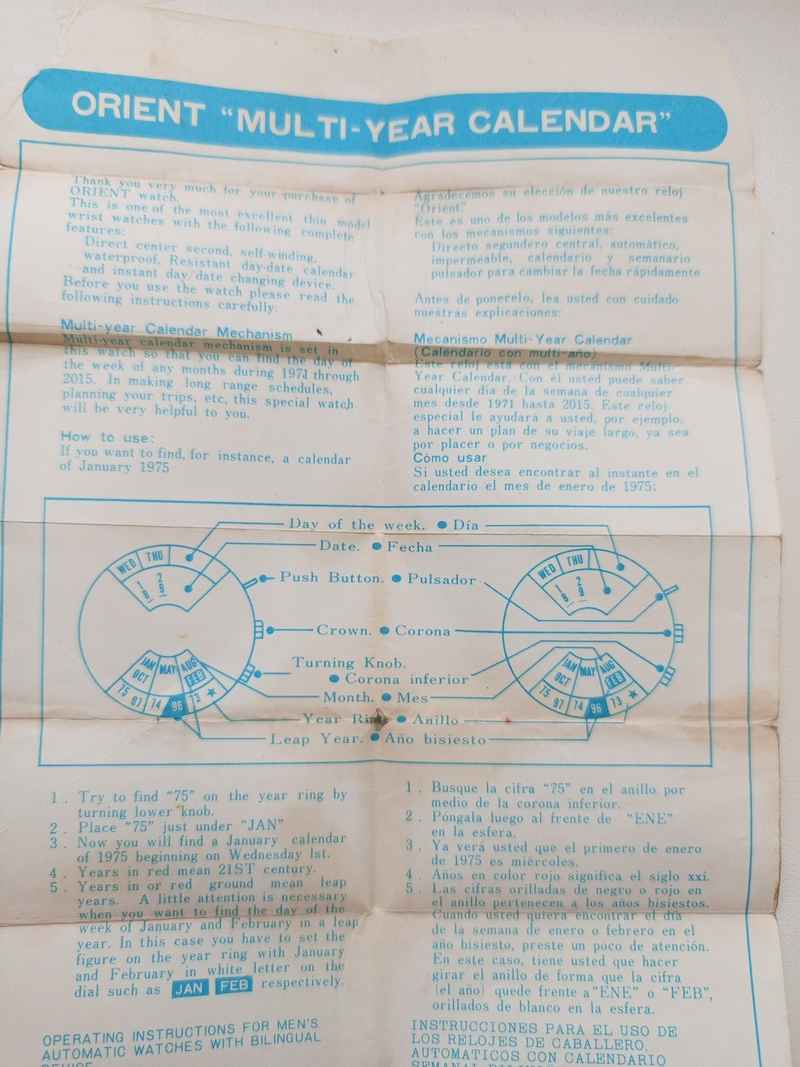 ORIENT “MULTI-YEAR CALENDAR”
Thank you very much for your purchase of
ORIENT watch.
This is one of the most excellent thin model
wrist watches with the following complete
features:
Direct center second, self-winding,
waterproof, Resistant day-date calendar
and instant day/date changing device.
Before you use the watch please read the
following instructions carefully:
Multi-year Calendar Mechanism
Multi-year calendar mechanism is set in
this watch so that you can find the day of
the week of any months during 1971 through
2015. In making long range schedules,
planning your trips, etc, this special watch
will be very helpful to you.
How to use:
If you want to find, for instance, a calendar
of January 1975
Agradecemos su elección de nuestro reloj
“Orient”
Este es uno de los modelos más excelentes
con los mecanismos siguientes:
Directo segundero central, automático,
impermeable, calendario y semanario
pulsador para cambiar la fecha rápidamente
Antes de ponerelo, lea usted con cuidado
nuestras explicaciones:
Mecanismo Multi-Year Calendar
(Calendario con multi-año)
Este reloj está con el mecanismo Multi-
Year Calendar. Con él usted puede saber
cualquier día de la semana de cualquier
mes desde 1971 hasta 2015. Este reloj
especial le ayudará a usted, por ejemplo,
a hacer un plan de su viaje largo, ya sea
por placer o por negocios.
Cómo usar
Si usted desea encontrar al instante en el
calendario el mes de enero de 1975:
Day of the week. ● Día
Date. ● Fecha
Push Button. ● Pulsador
Crown. ● Corona
Turning Knob.
● Corona inferior
Month. ● Mes
Year Ring ● Anillo
Leap Year. ● Año bisiesto
WED THU
1 8 2 9
JAN MAY AUG
OCT FEB
75 97 74 96 73 ★
WED THU
1 8 2 9
JAN MAY AUG
OCT FEB
75 97 74 96 73 ★
1. Try to find “75” on the year ring by
turning lower knob.
2. Place “75” just under “JAN”
3. Now you will find a January calendar
of 1975 beginning on Wednesday 1st.
4. Years in red mean 21ST century.
5. Years in or red ground mean leap
years. A little attention is necessary
when you want to find the day of the
week of January and February in a leap
year. In this case you have to set the
figure on the year ring with January
and February in white letter on the
dial such as JAN FEB respectively.
1. Busque la cifra “75” en el anillo por
medio de la corona inferior.
2. Póngala luego al frente de “ENE”
en la esfera.
3. Ya verá usted que el primero de enero
de 1975 es miércoles.
4. Años en color rojo significa el siglo xxi.
5. Las cifras orilladas de negro o rojo en
el anillo pertenecen a los años bisiestos.
Cuando usted quiera encontrar el día
de la semana de enero o febrero en el
año bisiesto, preste un poco de atención.
En este caso, tiene usted que hacer
girar el anillo de forma que la cifra
(el año) quede frente a "ENE" o “FEB”,
orillados de blanco en la esfera.
OPERATING INSTRUCTIONS FOR MEN'S
AUTOMATIC WATCHES WITH BILINGUAL
INSTRUCCIONES PARA EL USO DE
LOS RELOJES DE CABALLERO,
AUTOMATICOS CON CALENDARIO